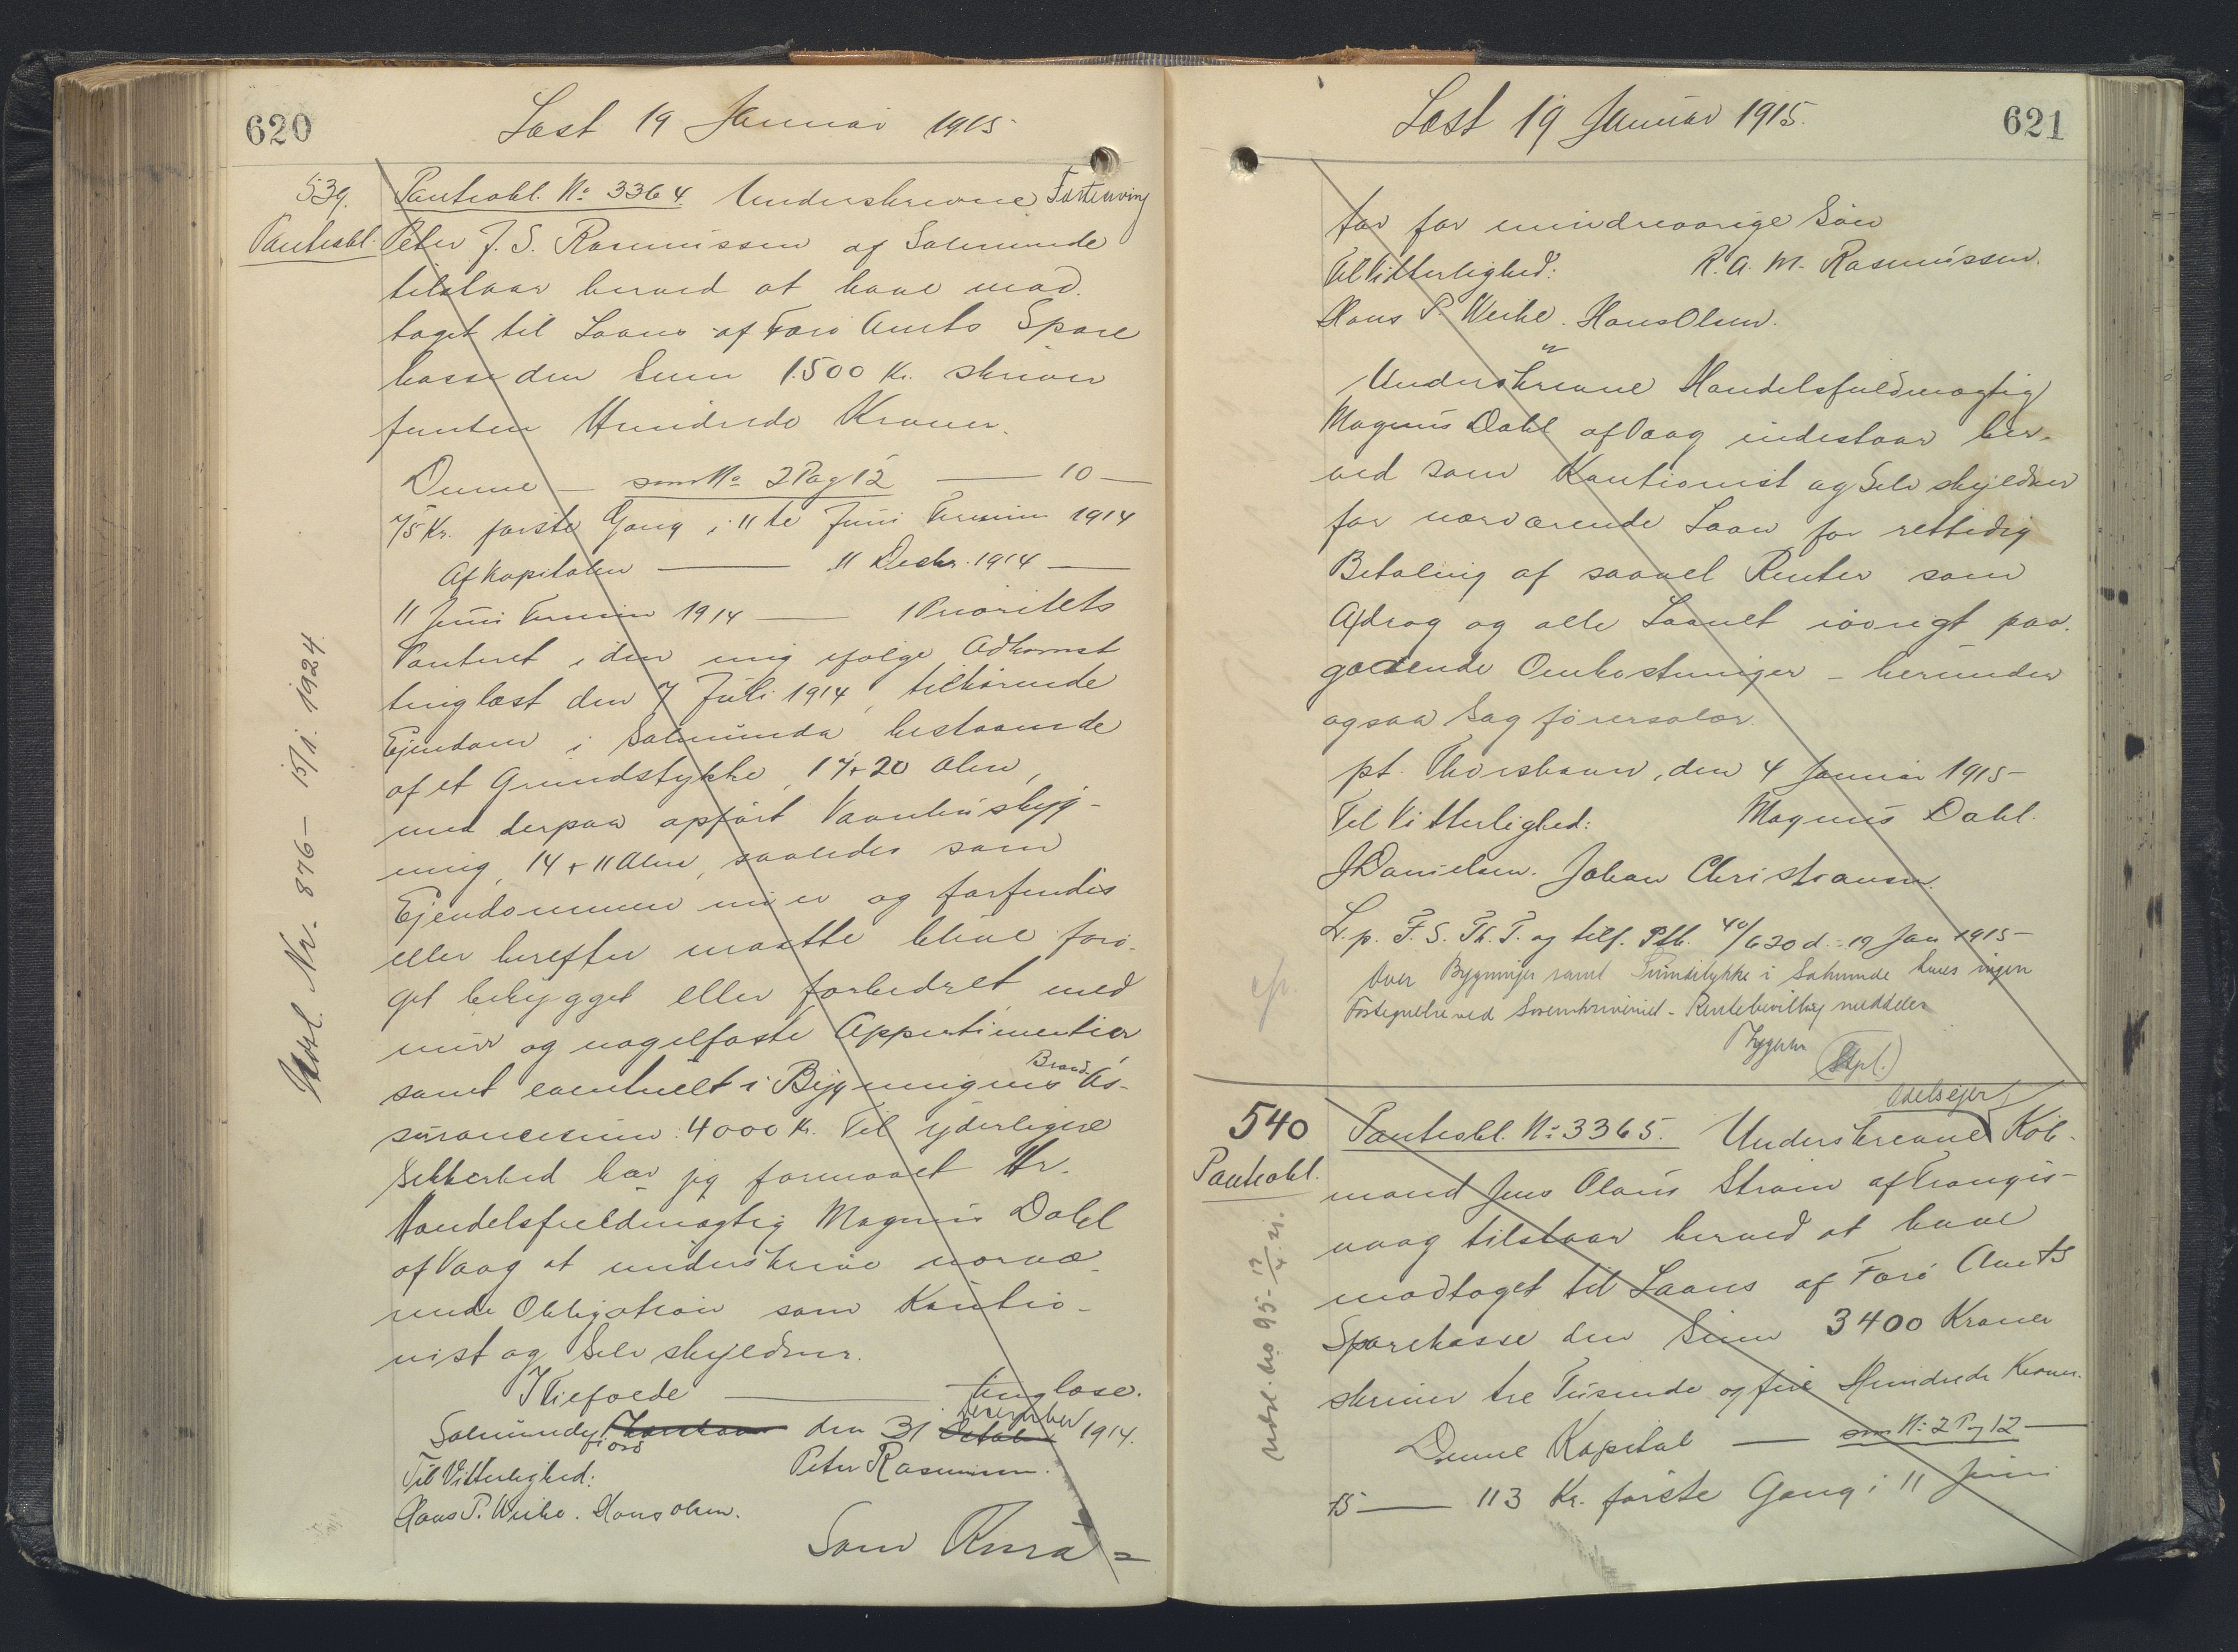 620
Læst 19 Januar 1915
539.
Panteobl.
Panteobl. No 3364. Underskrevne
Peter J. S. Rasmussen af Salmunde
tilstaar herved at have mod-
taget til Laans af Færø Amts Spare
kasse den Sum 1500 Kr. skriver
femten Hundrede Kroner.
Denne — som No 2 Pag 12 — 10 —
75 Kr. første Gang i 11te Juni Termin 1914
Af Kapitalen — 11 Decbr. 1914 —
11 Juni Termin 1914 — 1 Prioritets
Panteret i den mig ifølge Adkomst
tinglæst den 7 Juli 1914, tilhørende
Ejendom i Salmunda bestaaende
af et Grundstykke, 14 + 20 Alen,
med derpaa opført Vaaningsbyg-
ning, 14 + 11 Alen, saaledes som
Ejendommen nu er og forfindes
eller herefter maatte blive forø-
get bebygget eller forbedret med
mur og nagelfaste Appertinentier
samt eventuelt i Bygningens Brand As-
surancesum: 4000 Kr. Til yderligere
Sikkerhed har jeg formaaet Hr.
Handelsfuldmægtig Magnus Dahl
af Vaag at underskrive nærvæ-
rende Obligation som Kautio-
nist og Selvskyldner.
I Tilfælde — tinglæse.
Salmundefjord Thorshavn den 31 Oktober December 1914.
Til Vitterlighed: Peter Rasmussen.
Hans P. Weihe. Hans Olsen.
Som Kura=
Udsl. Nr. 876 - 15/1. 1924.
Læst 19 Januar 1915.
621
tor for mindreaarige Søn
Til Vitterlighed: R. A. M. Rasmussen.
Hans P. Weihe. Hans Olsen.
Underskrevne Handelsfuldmægtig
Magnus Dahl af Vaag indestaar her-
ved som Kautionist og Selvskyldner
for nærværende Laan for rettidig
Betaling af saavel Renter som
Afdrag og alle Laanet iøvrigt paa-
gældende Omkostninger - herunder
ogsaa Sagførersalær.
pt. Thorshavn, den 4 Januar 1915 -
Til Vitterlighed: Magnus Dahl.
J Danielsen. Johan Christiansen.
L. p. F. S. Th. T. og tilf. Ptb. 40/620 d. 19 Jan 1915 -
Over Bygninger samt Grundstykke i Salmunde haves ingen
Fortegnelse ved Sorenskriveriet - Rentebevilling meddeles
(Stpl.)
540
Panteobl.
Panteobl. No 3365. Underskrevne Odelsejer Køb-
mand Jens Olaus Strøm af Trangis-
vaag tilstaar herved at have
modtaget til Laans af Færø Amts
Sparekasse den Sum 3400 Kroner
skriver tre Tusinde og fire Hundrede Kroner.
Denne Kapital — som No 2 Pag 12 —
15 — 113 Kr. første Gang i 11 Juni
Udsl. No 95 - 12/4. 21.